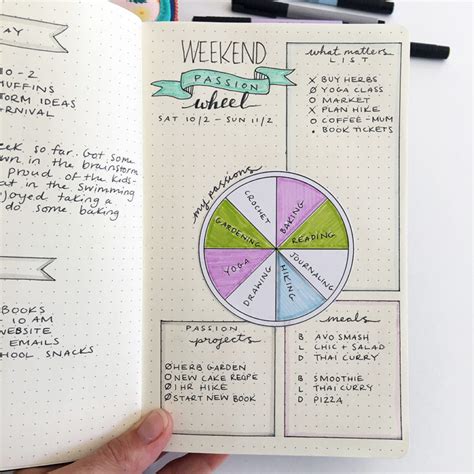 AY
10-2
MUFFINS
STORM IDEAS
CARNIVAL
EEK SO FAR. GOT SOME
OWN IN THE BRAINSTORM
PROUD OF THE KIDS
AT IN THE SWIMMING
JOYED TAKING A
DO SOME BAKING
BOOKS
- 10 AM
WEBSITE
EMAILS
SCHOOL SNACKS
WEEKEND
PASSION
wheel
SAT 10/2 - SUN 11/2
what matters
LIST
X BUY HERBS
Ø YOGA CLASS
O MARKET
X PLAN HIKE
O COFFEE - MUM
• BOOK TICKETS
my passions
CROCHET
BAKING
READING
JOURNALING
HIKING
DRAWING
YOGA
GARDENING
PASSION
projects
Ø HERB GARDEN
O NEW CAKE RECIPE
Ø 1 HR HIKE
Ø START NEW BOOK
meals
B AVO SMASH
L CHIC + SALAD
D THAI CURRY
B SMOOTHIE
L THAI CURRY
D PIZZA